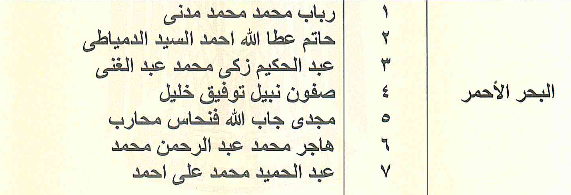 ١ رباب محمد محمد مدنى
٢ حاتم عطا الله احمد السيد الدمياطى
٣ عبد الحكيم زكى محمد عبد الغنى
البحر الأحمر ٤ صفون نبيل توفيق خليل
٥ مجدى جاب الله فنحاس محارب
٦ هاجر محمد عبد الرحمن محمد
٧ عبد الحميد محمد على احمد